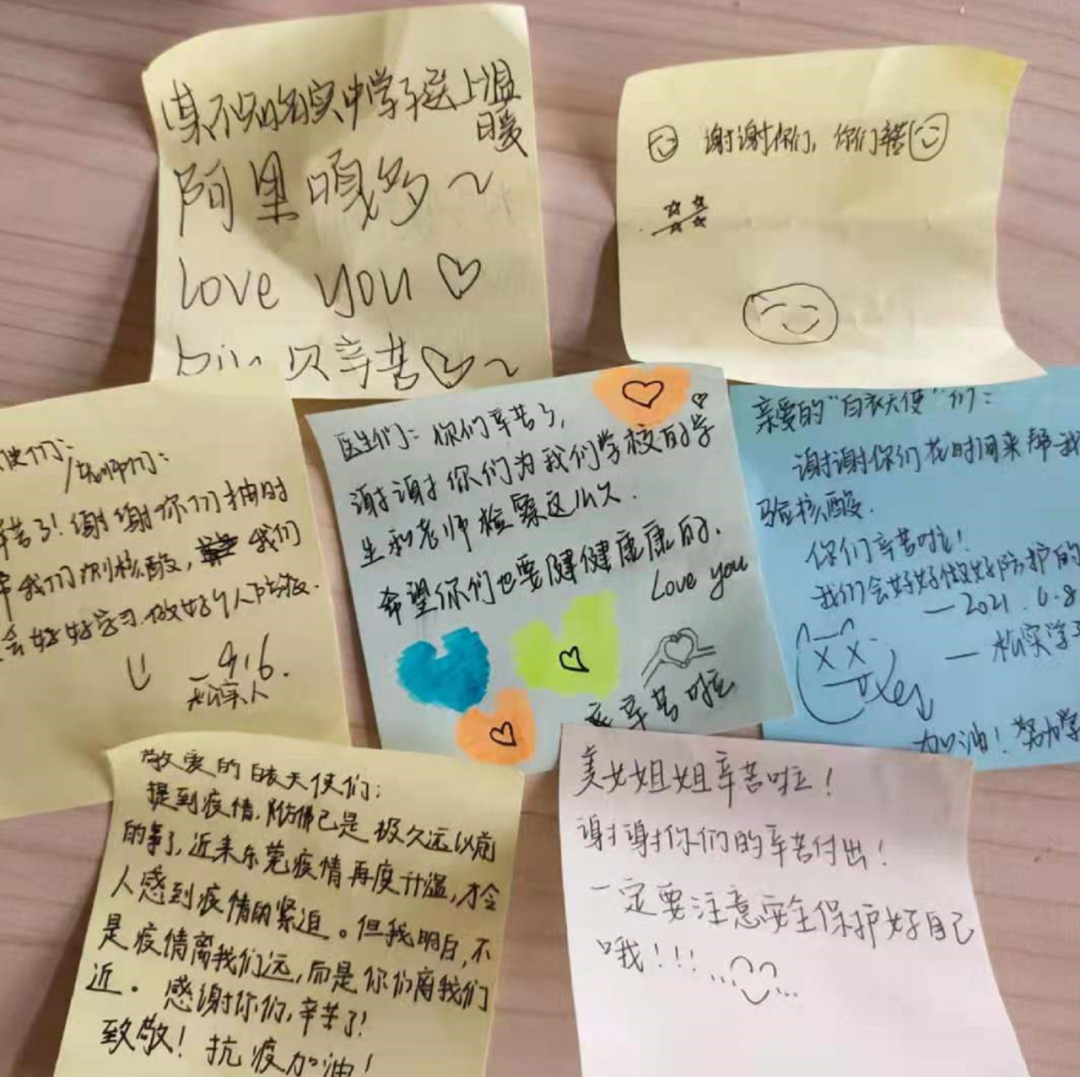 某不知名实中学子送上温
暖
阿里嘎多~
Love you
贝辛苦~
谢谢你们,你们辛苦
使们:
/老师们:
辛苦了!谢谢你们抽时
我们测核酸,我们
会好好学习.做好个人防疫.
4.16.
松实人
医生们:你们辛苦了,
谢谢你们为我们学校的学
生和老师检察这么久.
希望你们也要健健康康的.
Love you
辛苦啦
亲爱的"白衣天使"们:
谢谢你们花时间来帮我
验核酸.
你们辛苦啦!
我们会好好做好防护的
—2021.6.8
—松实学
Yes
加油!努力学
敬爱的白衣天使们:
提到疫情,仿佛已是极久远以前
的事了,近来东莞疫情再度升温,才令
人感到疫情的紧迫。但我明白,不
是疫情离我们远,而是你们离我们
近。感谢你们,辛苦了!
致敬!抗疫加油!
美女姐姐辛苦啦!
谢谢你们的辛苦付出!
一定要注意安全保护好自己
哦!!!